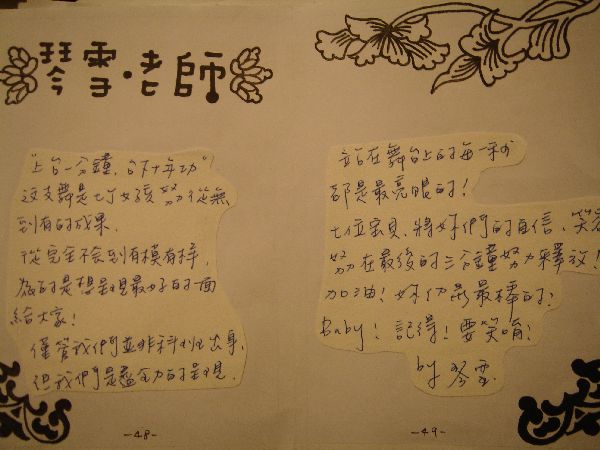 琴雪·老師
"上台一分鐘,台下十年功"
這支舞是七個女孩努力從無
到有的成果.
從完全不會到有模有樣,
為的是想呈現最好的一面
給大家!
僅管我們並非科班出身,
但我們是盡全力的呈現.
-48-
站在舞台上的每一秒
都是最亮眼的!
七位寶貝,將妳們的自信、笑容
努力在最後的三分鐘努力釋放!
加油!妳們最棒的!
Baby!記得!要笑唷!
by 琴雪
-49-